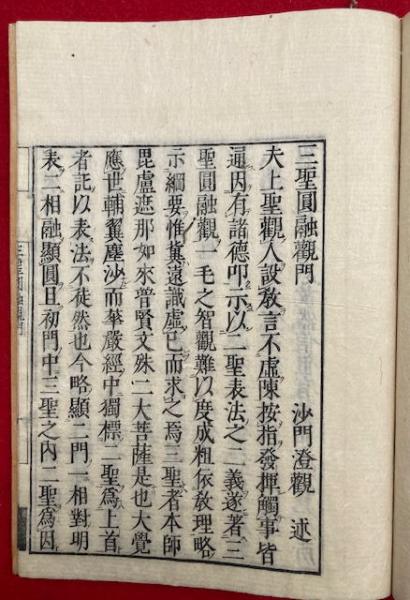 三聖圓融觀門　沙門澄觀　述
夫上聖觀人設敎言不虛陳按指發揮觸事皆
通因有諸德叩示以二聖表法之二義遂著三
聖圓融觀一毛之智觀難以度成粗依敎理略
示綱要惟冀遠識虛已而求之焉三聖者本師
毘盧遮那如來普賢文殊二大菩薩是也大覺
應世輔翼塵沙而華嚴經中獨標二聖爲上首
者託以表法不徒然也今略顯二門一相對明
表二相融顯圓且初門中三聖之內二聖爲因